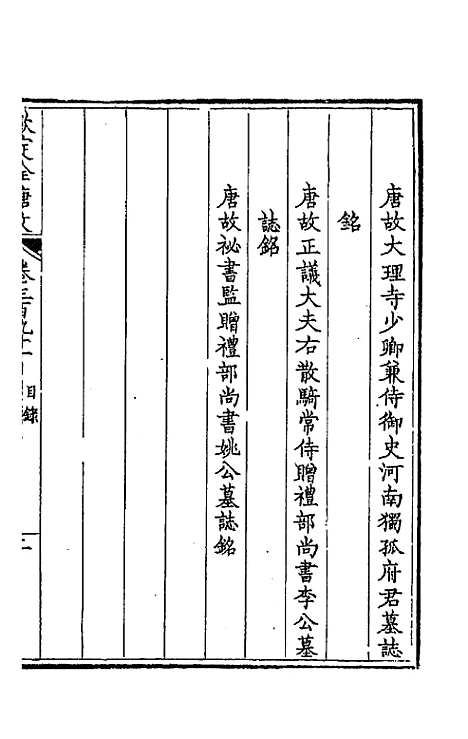 唐故大理寺少卿兼侍御史河南獨孤府君墓誌
銘
唐故正議大夫右散騎常侍贈禮部尚書李公墓
誌銘
唐故祕書監贈禮部尚書姚公墓誌銘
欽定全唐文
卷三百九十
目錄
二